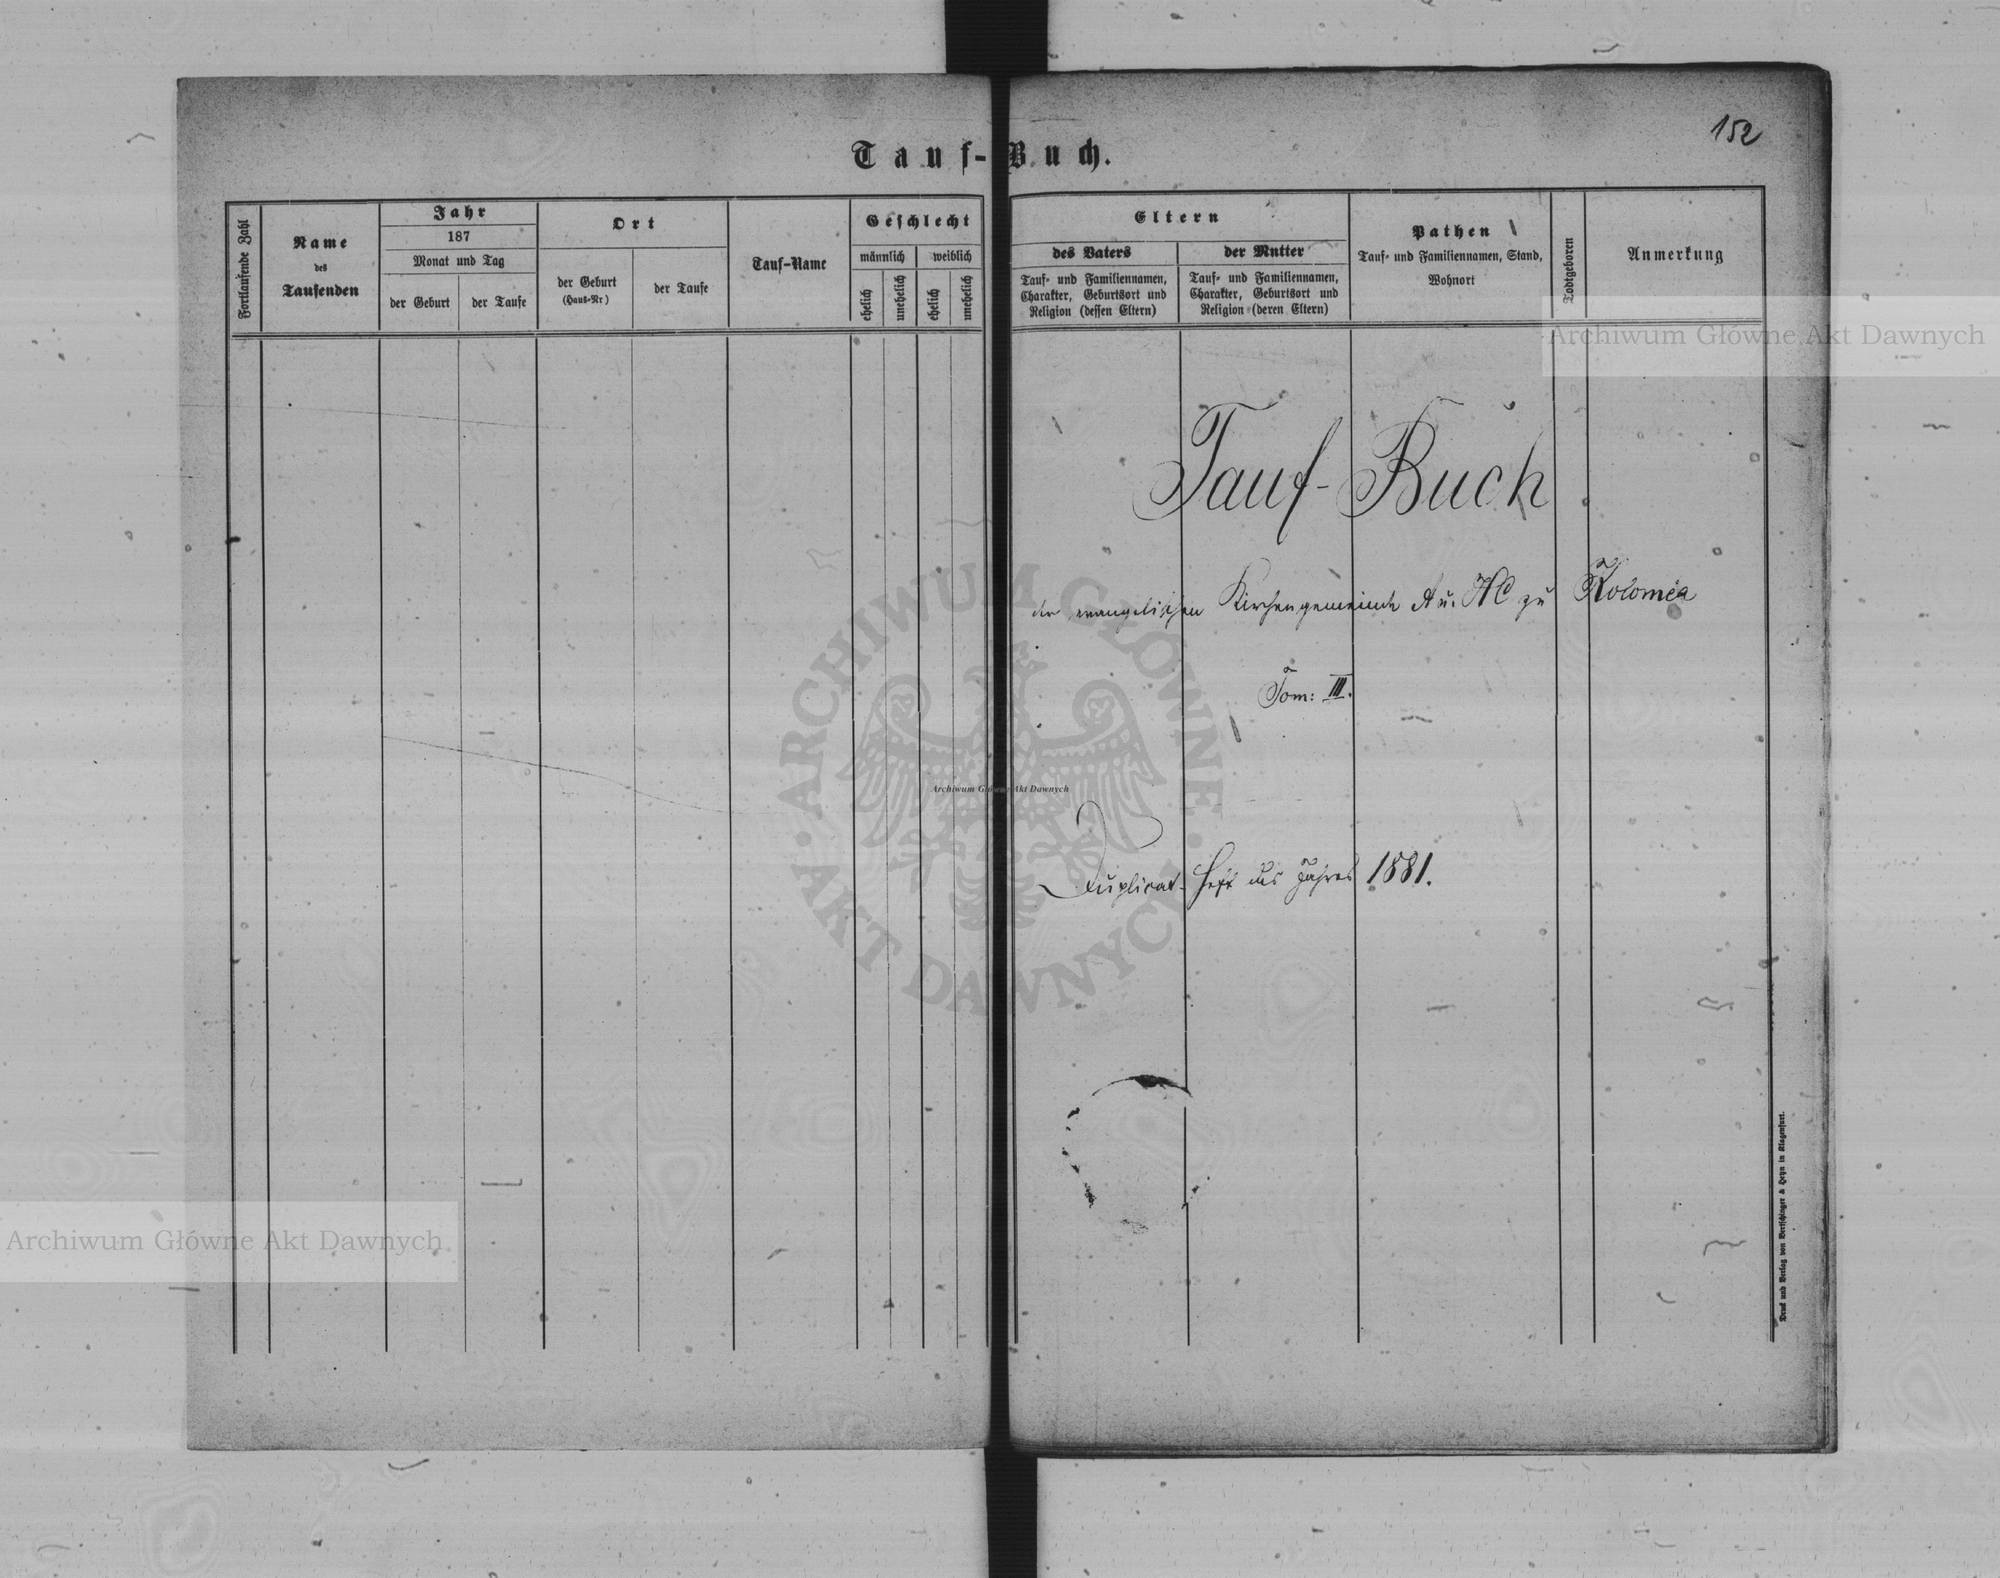 152
Tauf-Buch.
Fortlaufende Zahl
Name
des
Taufenden
Jahr
187
Monat und Tag
der Geburt
der Taufe
Ort
der Geburt
(Haus-Nr)
der Taufe
Tauf-Name
Geschlecht
männlich
weiblich
ehelich
unehelich
ehelich
unehelich
Eltern
des Vaters
Tauf- und Familiennamen,
Charakter, Geburtsort und
Religion (dessen Eltern)
der Mutter
Tauf- und Familiennamen,
Charakter, Geburtsort und
Religion (deren Eltern)
Pathen
Tauf- und Familiennamen, Stand,
Wohnort
Todtgeboren
Anmerkung
Archiwum Główne Akt Dawnych
Tauf-Buch
der evangelischen Kirchengemeinde A u. HC zu Kolomea
Tom: III.
ARCHIWUM GŁÓWNE
Archiwum Główne Akt Dawnych
Duplicat-Heft des Jahres 1881.
AKT DAWNYCH
Archiwum Główne Akt Dawnych
Druck und Verlag von Bertschinger & Heyn in Klagenfurt.